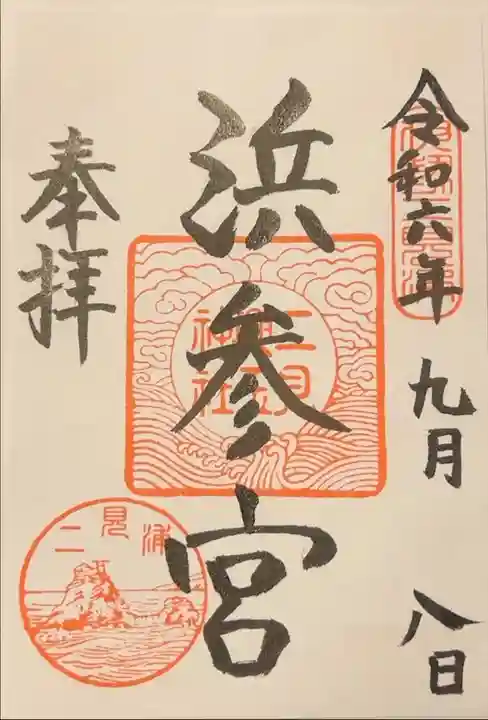 令和六年九月八日
浜参宮
奉拝
二見興玉神社
二見浦